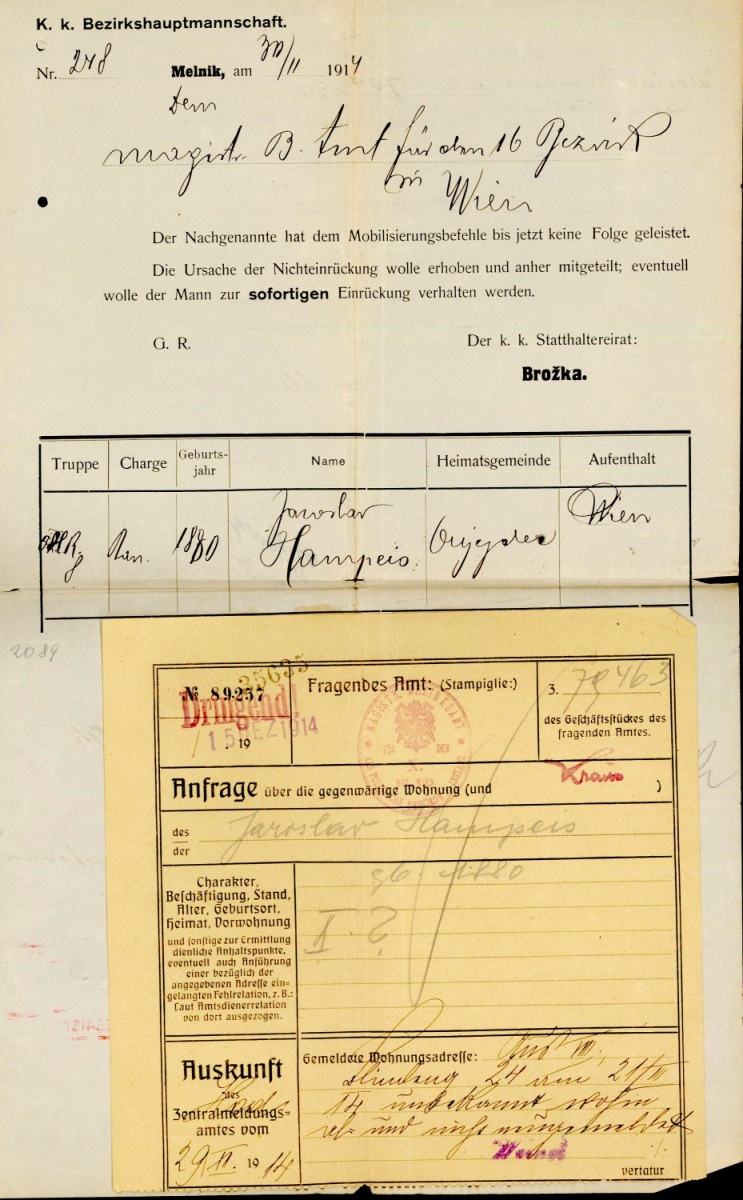 K. k. Bezirkshauptmannschaft.
Nr. 248 Melnik, am 30/11 1914
Dem
magistr. B. Amt für den 16 Bezirk
in
Wien
Der Nachgenannte hat dem Mobilisierungsbefehle bis jetzt keine Folge geleistet.
Die Ursache der Nichteinrückung wolle erhoben und anher mitgeteilt; eventuell
wolle der Mann zur sofortigen Einrückung verhalten werden.
G. R. Der k. k. Statthaltereirat:
Brožka.
Truppe Charge Geburts-jahr Name Heimatsgemeinde Aufenthalt
1880 Jaroslav Hampeis Wien
2089
35635
№ 89257 Fragendes Amt: (Stampiglie:) 3. 79463
Dringend!
15 DEZ 1914
. 19
des Geschäftsstückes des
fragenden Amtes.
Anfrage über die gegenwärtige Wohnung (und )
des
der
Jaroslav Hampeis
gb. 1880
Charakter,
Beschäftigung, Stand,
Alter, Geburtsort,
Heimat, Vorwohnung
und sonstige zur Ermittlung
dienliche Anhaltspunkte,
eventuell auch Anführung
einer bezüglich der
angegebenen Adresse ein-
gelangten Fehlrelation, z. B.:
Laut Amtsdienerrelation
von dort ausgezogen.
Auskunft
des
Zentralmeldungs-
amtes vom
19 14
Gemeldete Wohnungsadresse:
24 am
14 unbekannt wohin
und nicht neugemeldet
vertatur